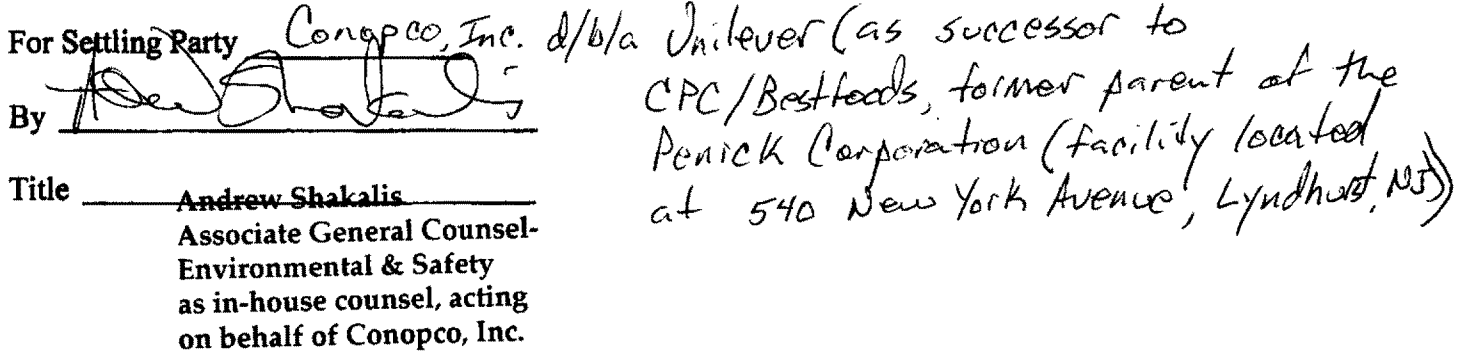 For Settling Party Conopco, Inc. d/b/a Unilever (as successor to
CPC/Bestfoods, former parent of the
By Andrew Shakalis
Penick Corporation (facility located
at 540 New York Avenue, Lyndhurst, NJ))
Title Andrew Shakalis
Associate General Counsel-
Environmental & Safety
as in-house counsel, acting
on behalf of Conopco, Inc.